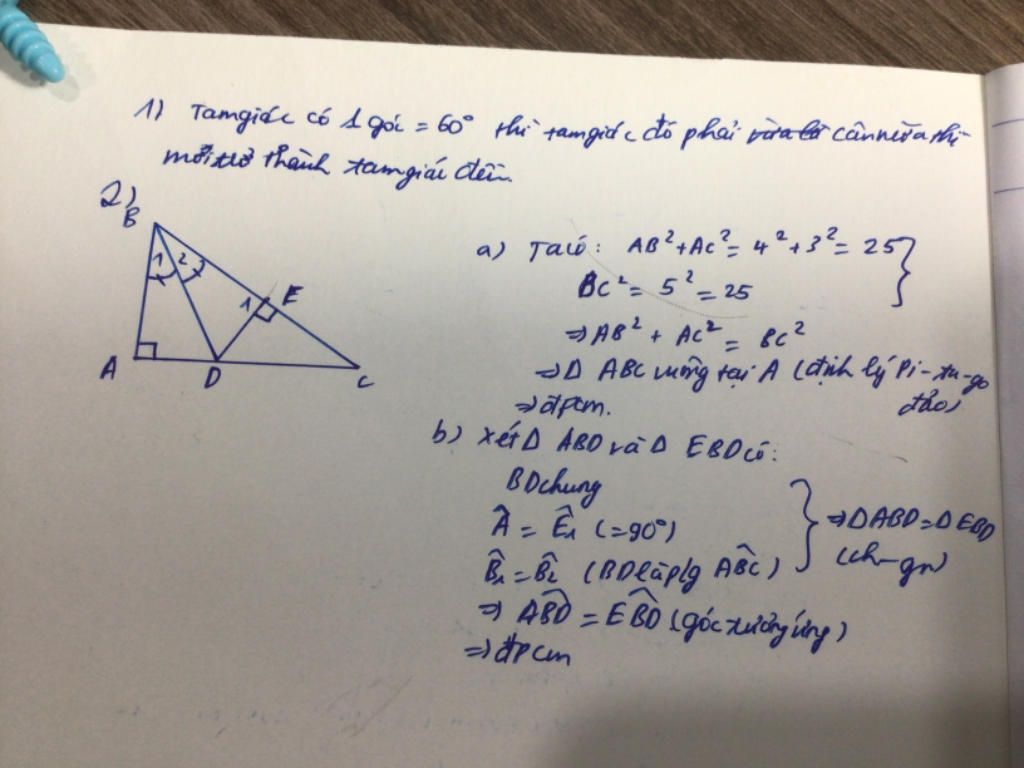 1) Tam giác có 1 góc = 60° thì tam giác đó phải vừa là cân nữa thì
mới trở thành tam giác đều.
2)
B
1 2
1 E
A D C
a) Ta có: AB² + AC² = 4² + 3² = 25
BC² = 5² = 25
⇒ AB² + AC² = BC²
⇒ Δ ABC vuông tại A (định lý Pi-ta-go
đảo)
⇒ đpcm.
b) Xét Δ ABD và Δ EBD có:
BD chung
Â = Ê₁ (= 90°)
⇒ Δ ABD = Δ EBD
B̂₁ = B̂₂ (BD là p/g AB̂C)
(ch - gn)
⇒ AB̂D = EB̂D (góc tương ứng)
⇒ đpcm